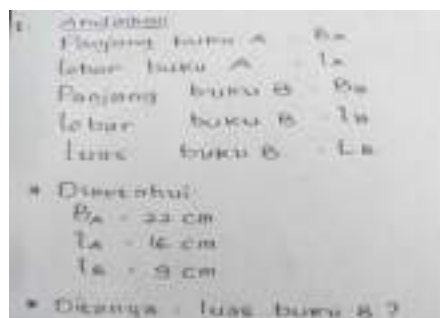 1. Andaikan
Panjang buku A = PA
lebar buku A = lA
Panjang buku B = PB
lebar buku B = lB
luas buku B = LB
* Diketahui
PA = 22 cm
lA = 16 cm
lB = 9 cm
* Ditanya : luas buku B ?